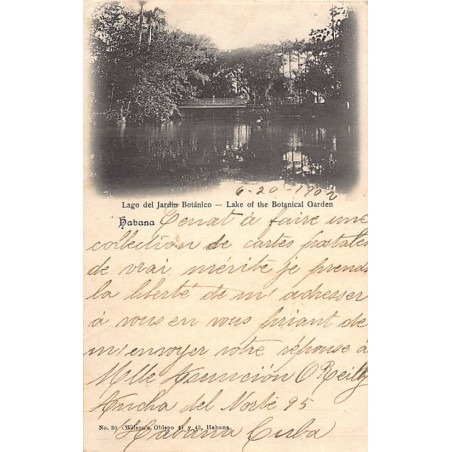 6-20-1902
Lago del Jardin Botánico — Lake of the Botanical Garden
Habana Tenant à faire une
collection de cartes postales
de vrai mérite je prends
la liberté de m'adresser
à vous en vous priant de
m'envoyer votre réponse à
Mlle Asunción O'Reilly
Ancha del Norte 95
No. 20 Wilson's, Obispo 41 y 43, Habana.
Habana Cuba